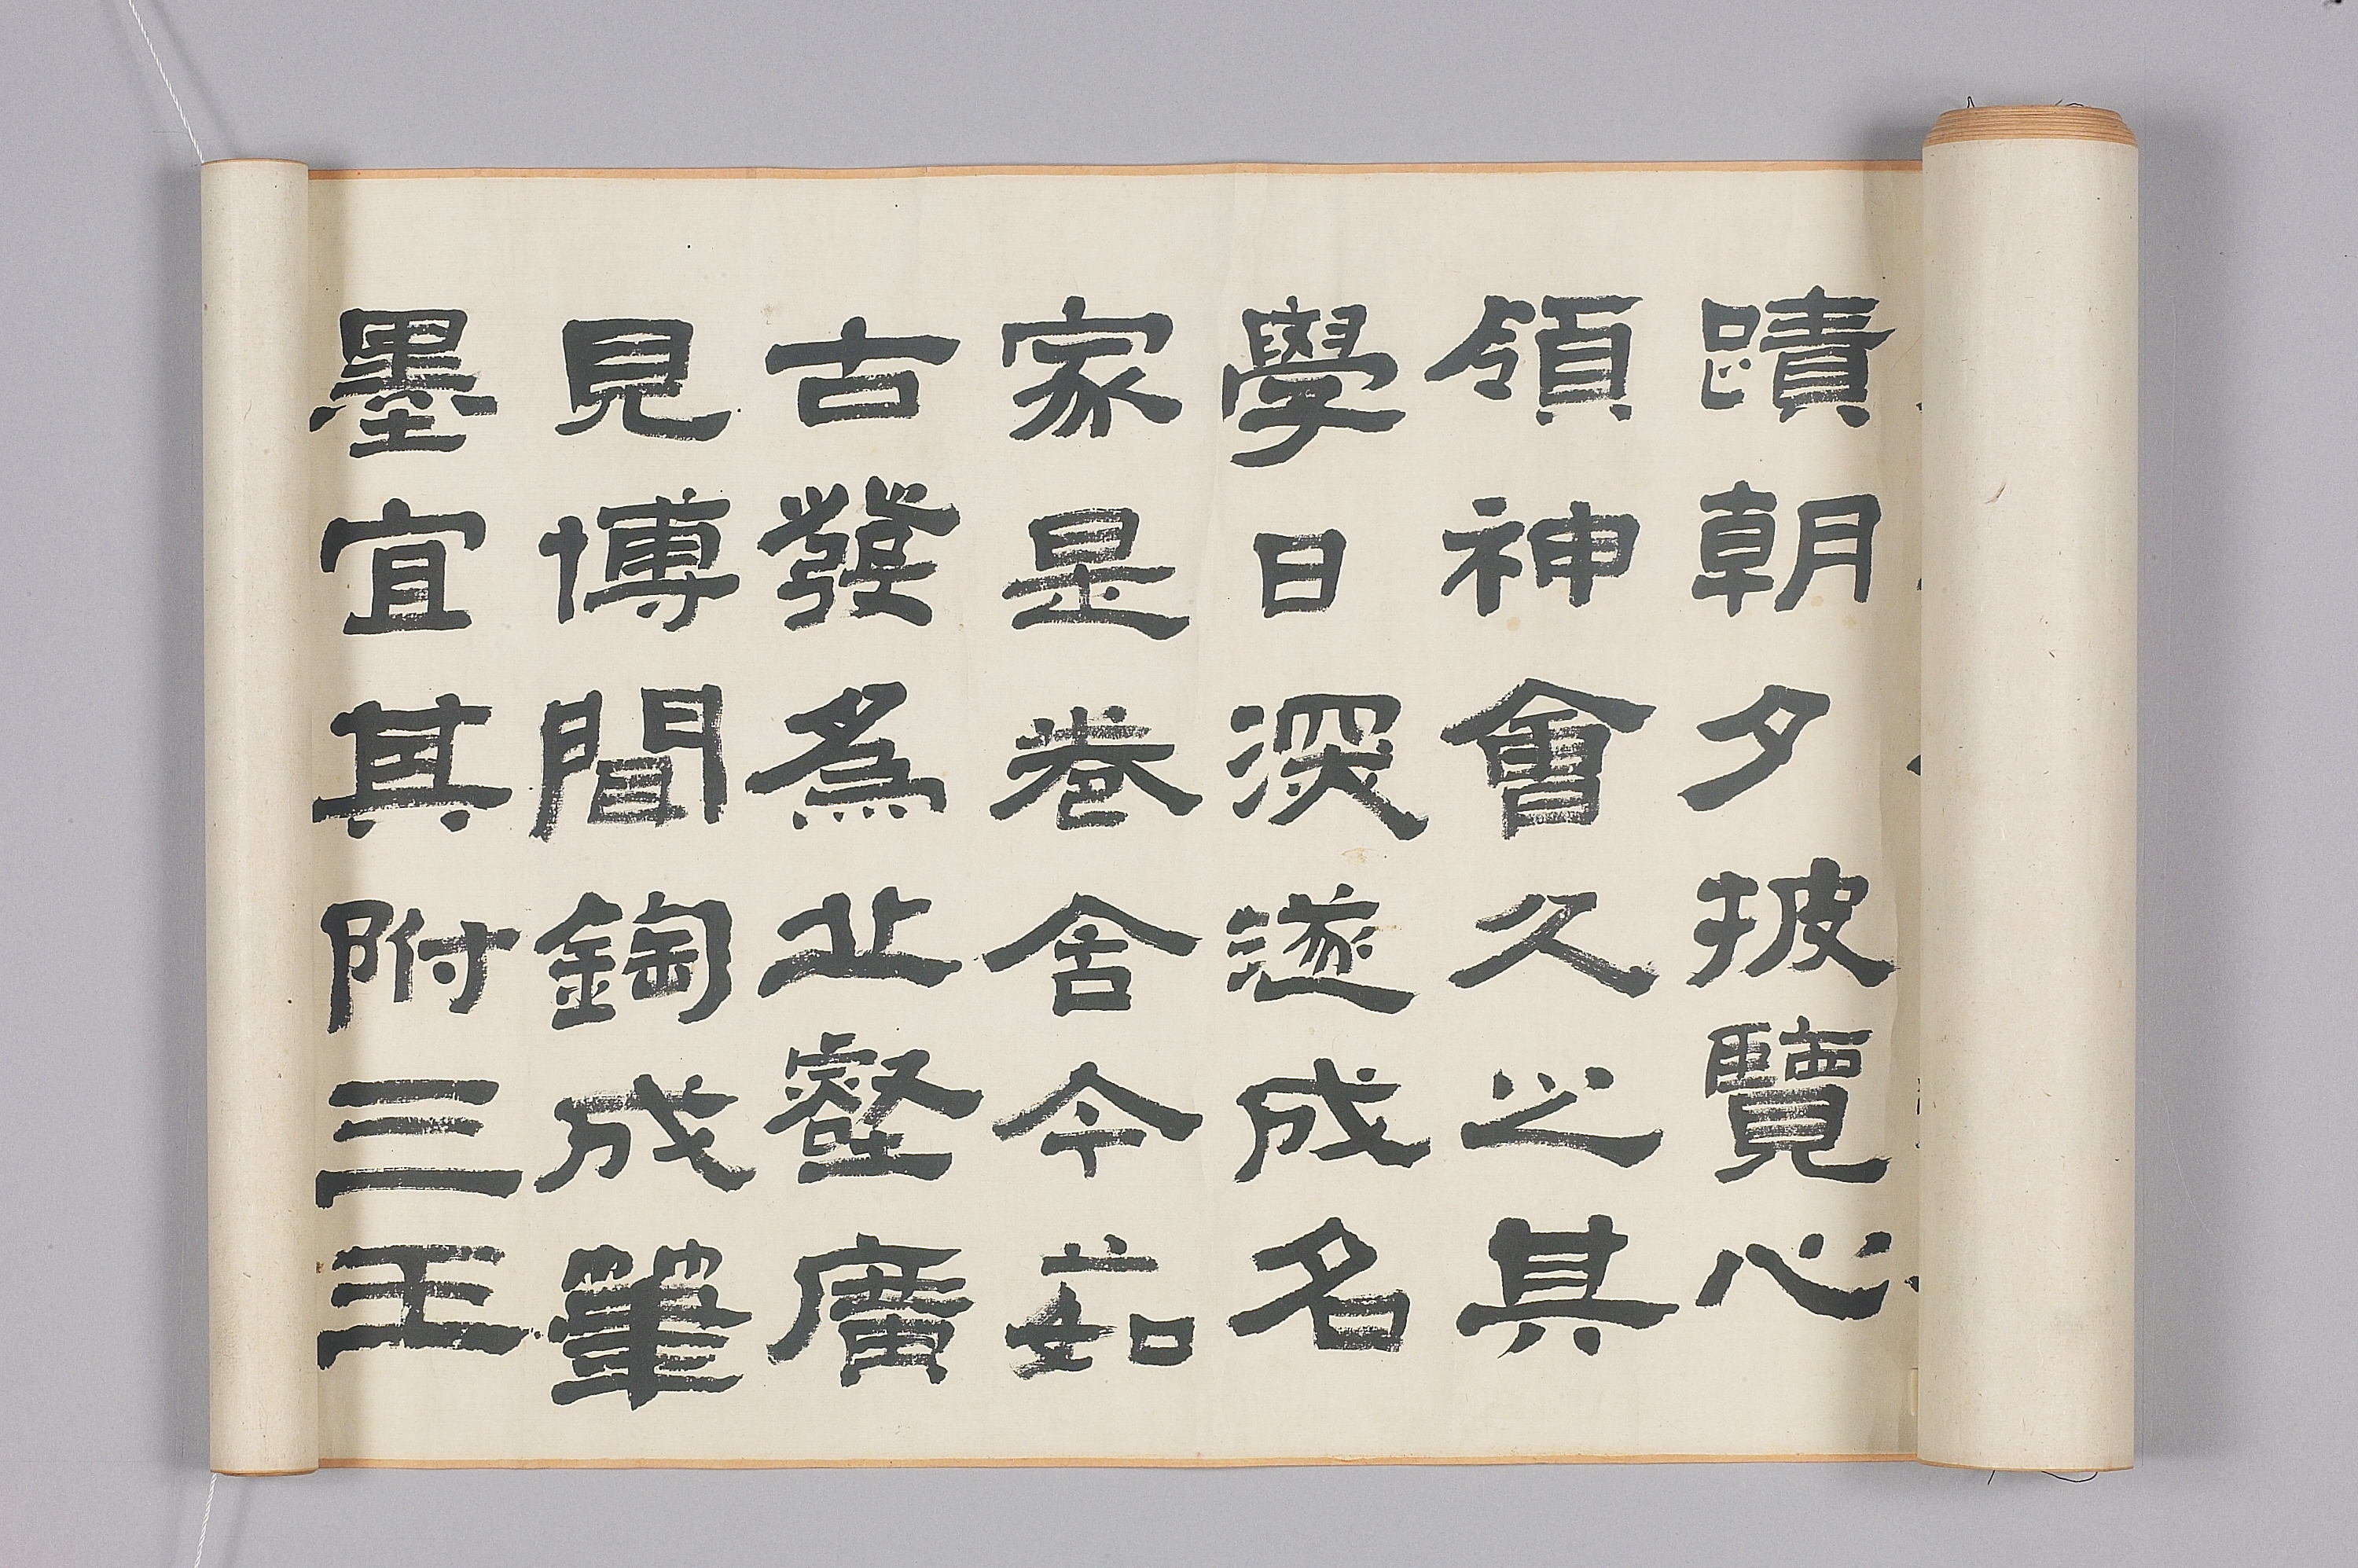 蹟朝夕披覽心
領神會久之其
學日深遂成名
家是卷舍今茹
古發為丘壑廣
見博聞鋾成筆
墨宜其附三王